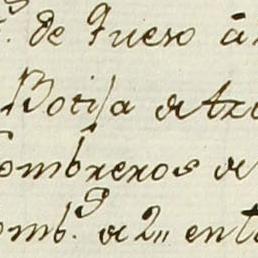 de Queso á
Botija de
ombreros de
omb.s de 2,, en